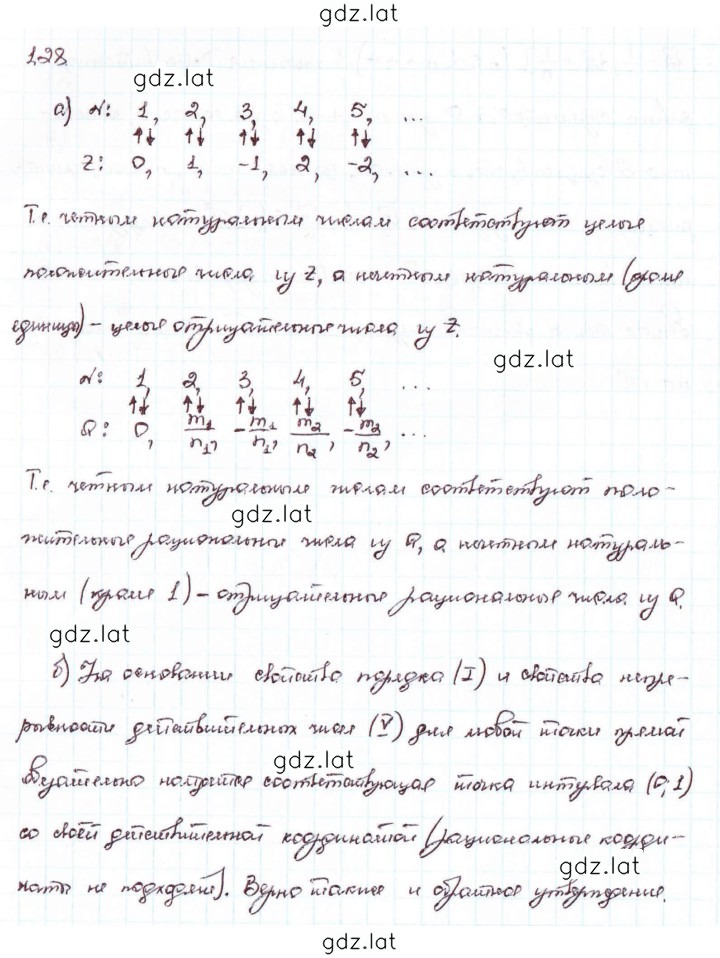 gdz.lat
1.28
gdz.lat
а) N: 1, 2, 3, 4, 5, ...
↑↓ ↑↓ ↑↓ ↑↓ ↑↓
Z: 0, 1, -1, 2, -2, ...
Т.е. четным натуральным числам соответствуют целые
положительные числа из Z, а нечетным натуральным (кроме
единицы) – целые отрицательные числа из Z.
gdz.lat
N: 1, 2, 3, 4, 5, ...
↑↓ ↑↓ ↑↓ ↑↓ ↑↓
Q: 0, m₁/n₁, -m₁/n₁, m₂/n₂, -m₂/n₂, ...
Т.е. четным натуральным числам соответствуют поло-
gdz.lat
жительные рациональные числа из Q, а нечетным натураль-
ным (кроме 1) – отрицательные рациональные числа из Q.
gdz.lat
б) На основании свойства порядка (I) и свойства непре-
рывности действительных чисел (V) для любой точки прямой
gdz.lat
обязательно найдется соответствующая точка интервала (0;1)
со своей действительной координатой (рациональные коорди-
gdz.lat
наты не подходят). Верно также и обратное утверждение.
gdz.lat